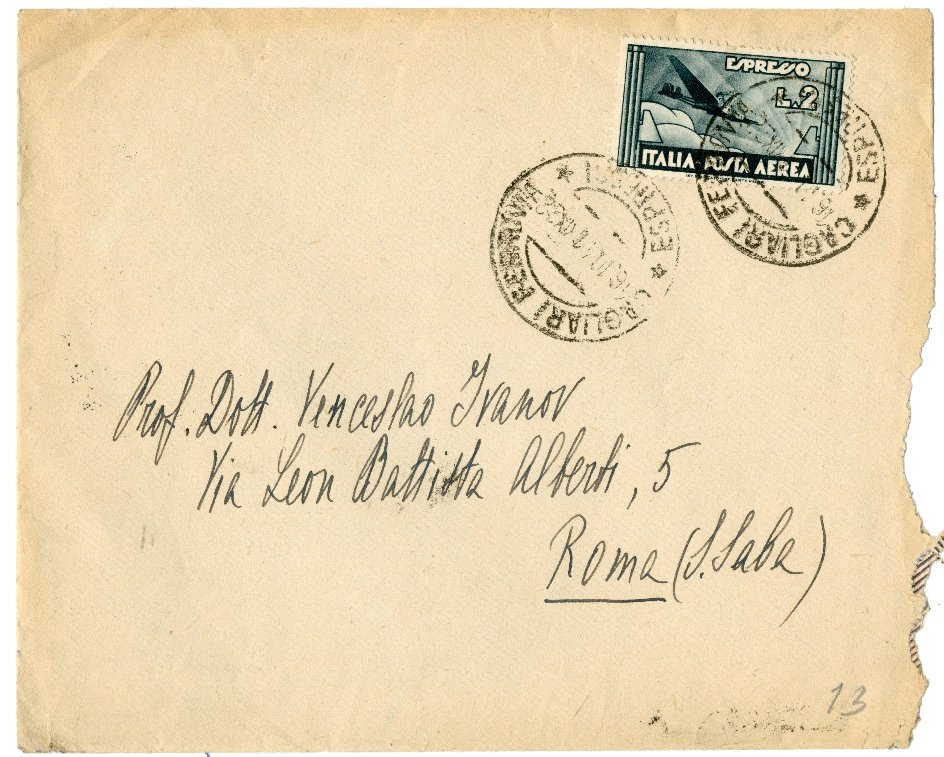 ESPRESSO
L.2
ITALIA - POSTA AEREA
CAGLIARI FERROVIA * ESPRESSI *
CAGLIARI FERROVIA * ESPRESSI *
Prof. Dott. Venceslao Ivanov
Via Leon Battista Alberti, 5
Roma (S. Saba)
13